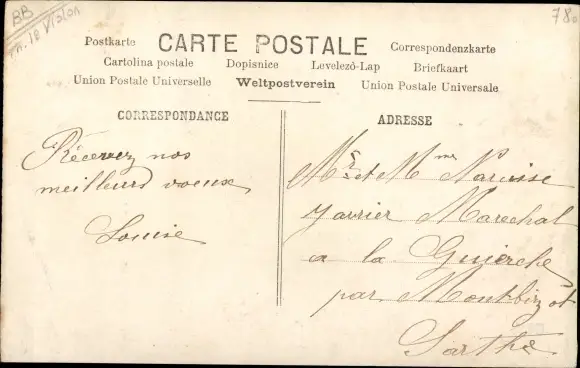 BB
Violon
780
Postkarte CARTE POSTALE Correspondenzkarte
Cartolina postale Dopisnice Levelező-Lap Briefkaart
Union Postale Universelle Weltpostverein Union Postale Universale
CORRESPONDANCE
Recevez nos
meilleurs voeux
Louise
ADRESSE
Mr et Mme Narcisse
Marechal
a la Guierche
par Montbizot
Sarthe